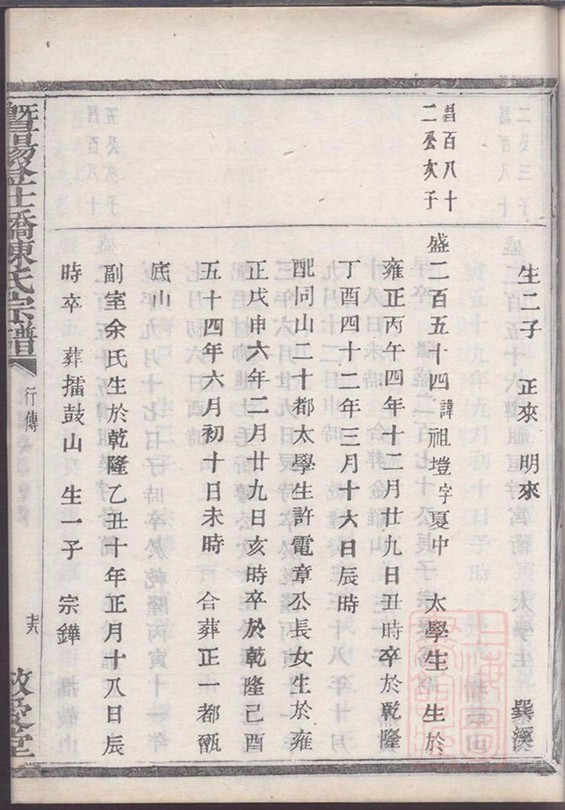 生二子　正來　明來　巽溪
昌百八十
二公亥子
盛二百五十四諱祖塏字夏中　太學生　生於
雍正丙午四年十二月廿九日丑時卒於乾隆
丁酉四十二年三月十六日辰時
配同山二十都太學生許電章公長女生於雍
正戊申六年二月廿九日亥時卒於乾隆己酉
五十四年六月初十日未時　合葬正一都甑
底山
副室余氏生於乾隆乙丑十年正月十八日辰
時卒　葬擂鼓山　生一子　宗鏵
暨陽　橋陳氏宗譜
行傳
敬愛堂